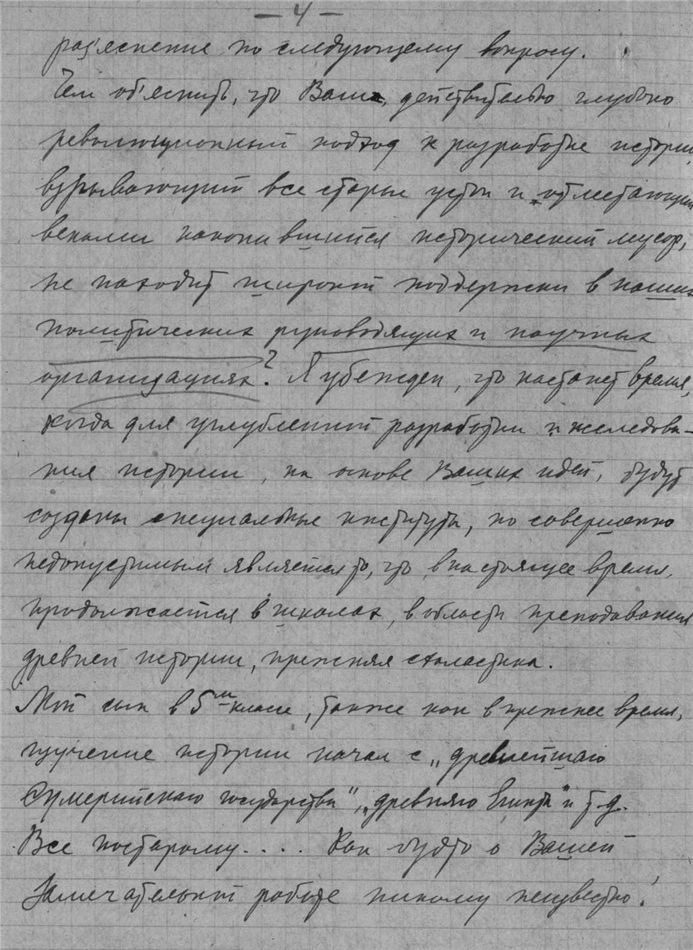 — 4 —
раз'яснение по следующему вопросу.
Чем об'яснить, что Ваш, действительно глубоко
революционный подход к разработке истории,
взрывающий все старые устои и отметающий
веками накопившийся исторический мусор,
не находит широкой поддержки в наших
политических руководящих и научных
организациях? Я убежден, что настанет время,
когда для углубленной разработки и исследова-
ния истории, на основе Ваших идей, будут
созданы специальные институты, но совершенно
недопустимым является то, что в настоящее время,
продолжается в школах, в области преподавания
древней истории, прежняя схоластика.
Мой сын в 5м классе, также как в прежнее время,
изучение истории начал с „древнейшего
Сумерийского государства", „древняго Египта" и т.д.
Все постарому.... Как будто о Вашей
замечательной работе никому неизвестно!